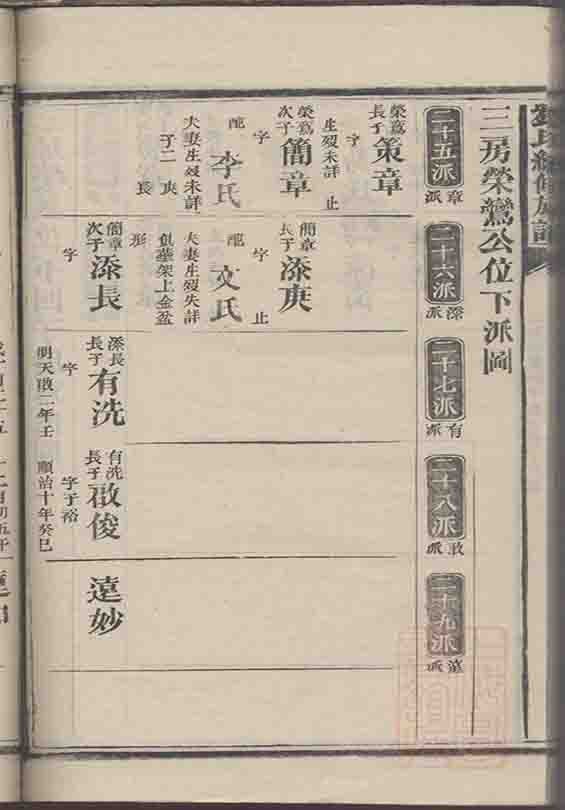 三房榮鸞公位下派圖
二十五派
章派
二十六派
添派
二十七派
有派
二十八派
啟派
二十九派
遠派
榮鸞長子
策章
生歿未詳 止
榮鸞次子
簡章
字
配
李氏
夫妻生歿未詳
子二 庚 長
簡章長子
添庚
字 止
配
文氏
夫妻生歿失詳
魚華架上金盆
形
簡章次子
添長
字
添長長子
有洗
字
明天啟二年壬
有洗長子
啟俊
字于裕
順治十年癸巳
遠妙